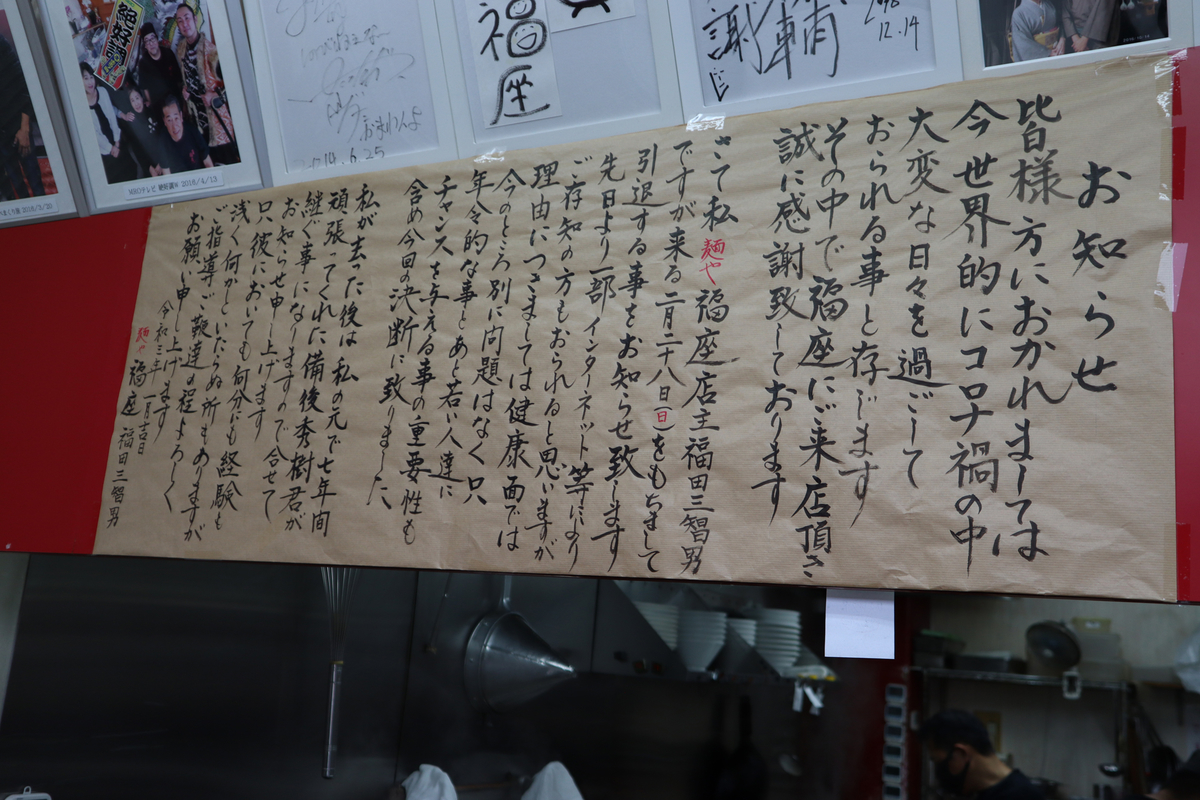 お知らせ
皆様方におかれましては
今世界的にコロナ禍の中
大変な日々を過ごして
おられる事と存じます
その中で福座にご来店頂き
誠に感謝致しております
さて私麺や福座店主福田三智男
ですが来る二月二十八日(日)をもちまして
引退する事をお知らせ致します
先日より一部インターネット等により
ご存知の方もおられると思いますが
理由につきましては健康面では
今のところ別に問題はなく只
年令的な事とあと若い人達に
チャンスを与える事の重要性も
含め今回の決断に致りました
私が去った後は私の元で七年間
頑張ってくれた備後秀樹君が
継ぐ事になりますので合せて
お知らせ申し上げます
只、彼においても何分にも経験も
浅く何かといたらぬ所もありますが
ご指導ご鞭達の程よろしく
お願い申し上げます
令和三年一月吉日
麺や福座 福田三智男
絶好調W
MROテレビ 絶好調W 2018/4/13
福座
謝
12.14